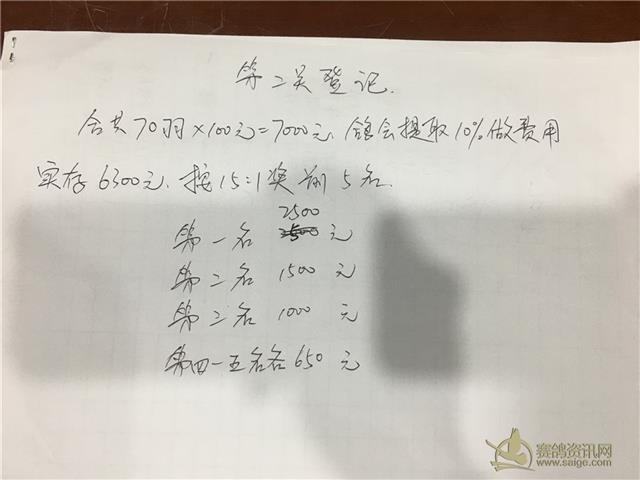 第二关登记.
合共70羽×100元=7000元.鸽会提取10%做费用
实存6300元.按15:1奖前5名.
2500
第一名 元
第二名 1500 元
第三名 1000 元
第四一五名各650元
赛鸽资讯网
www.saige.com